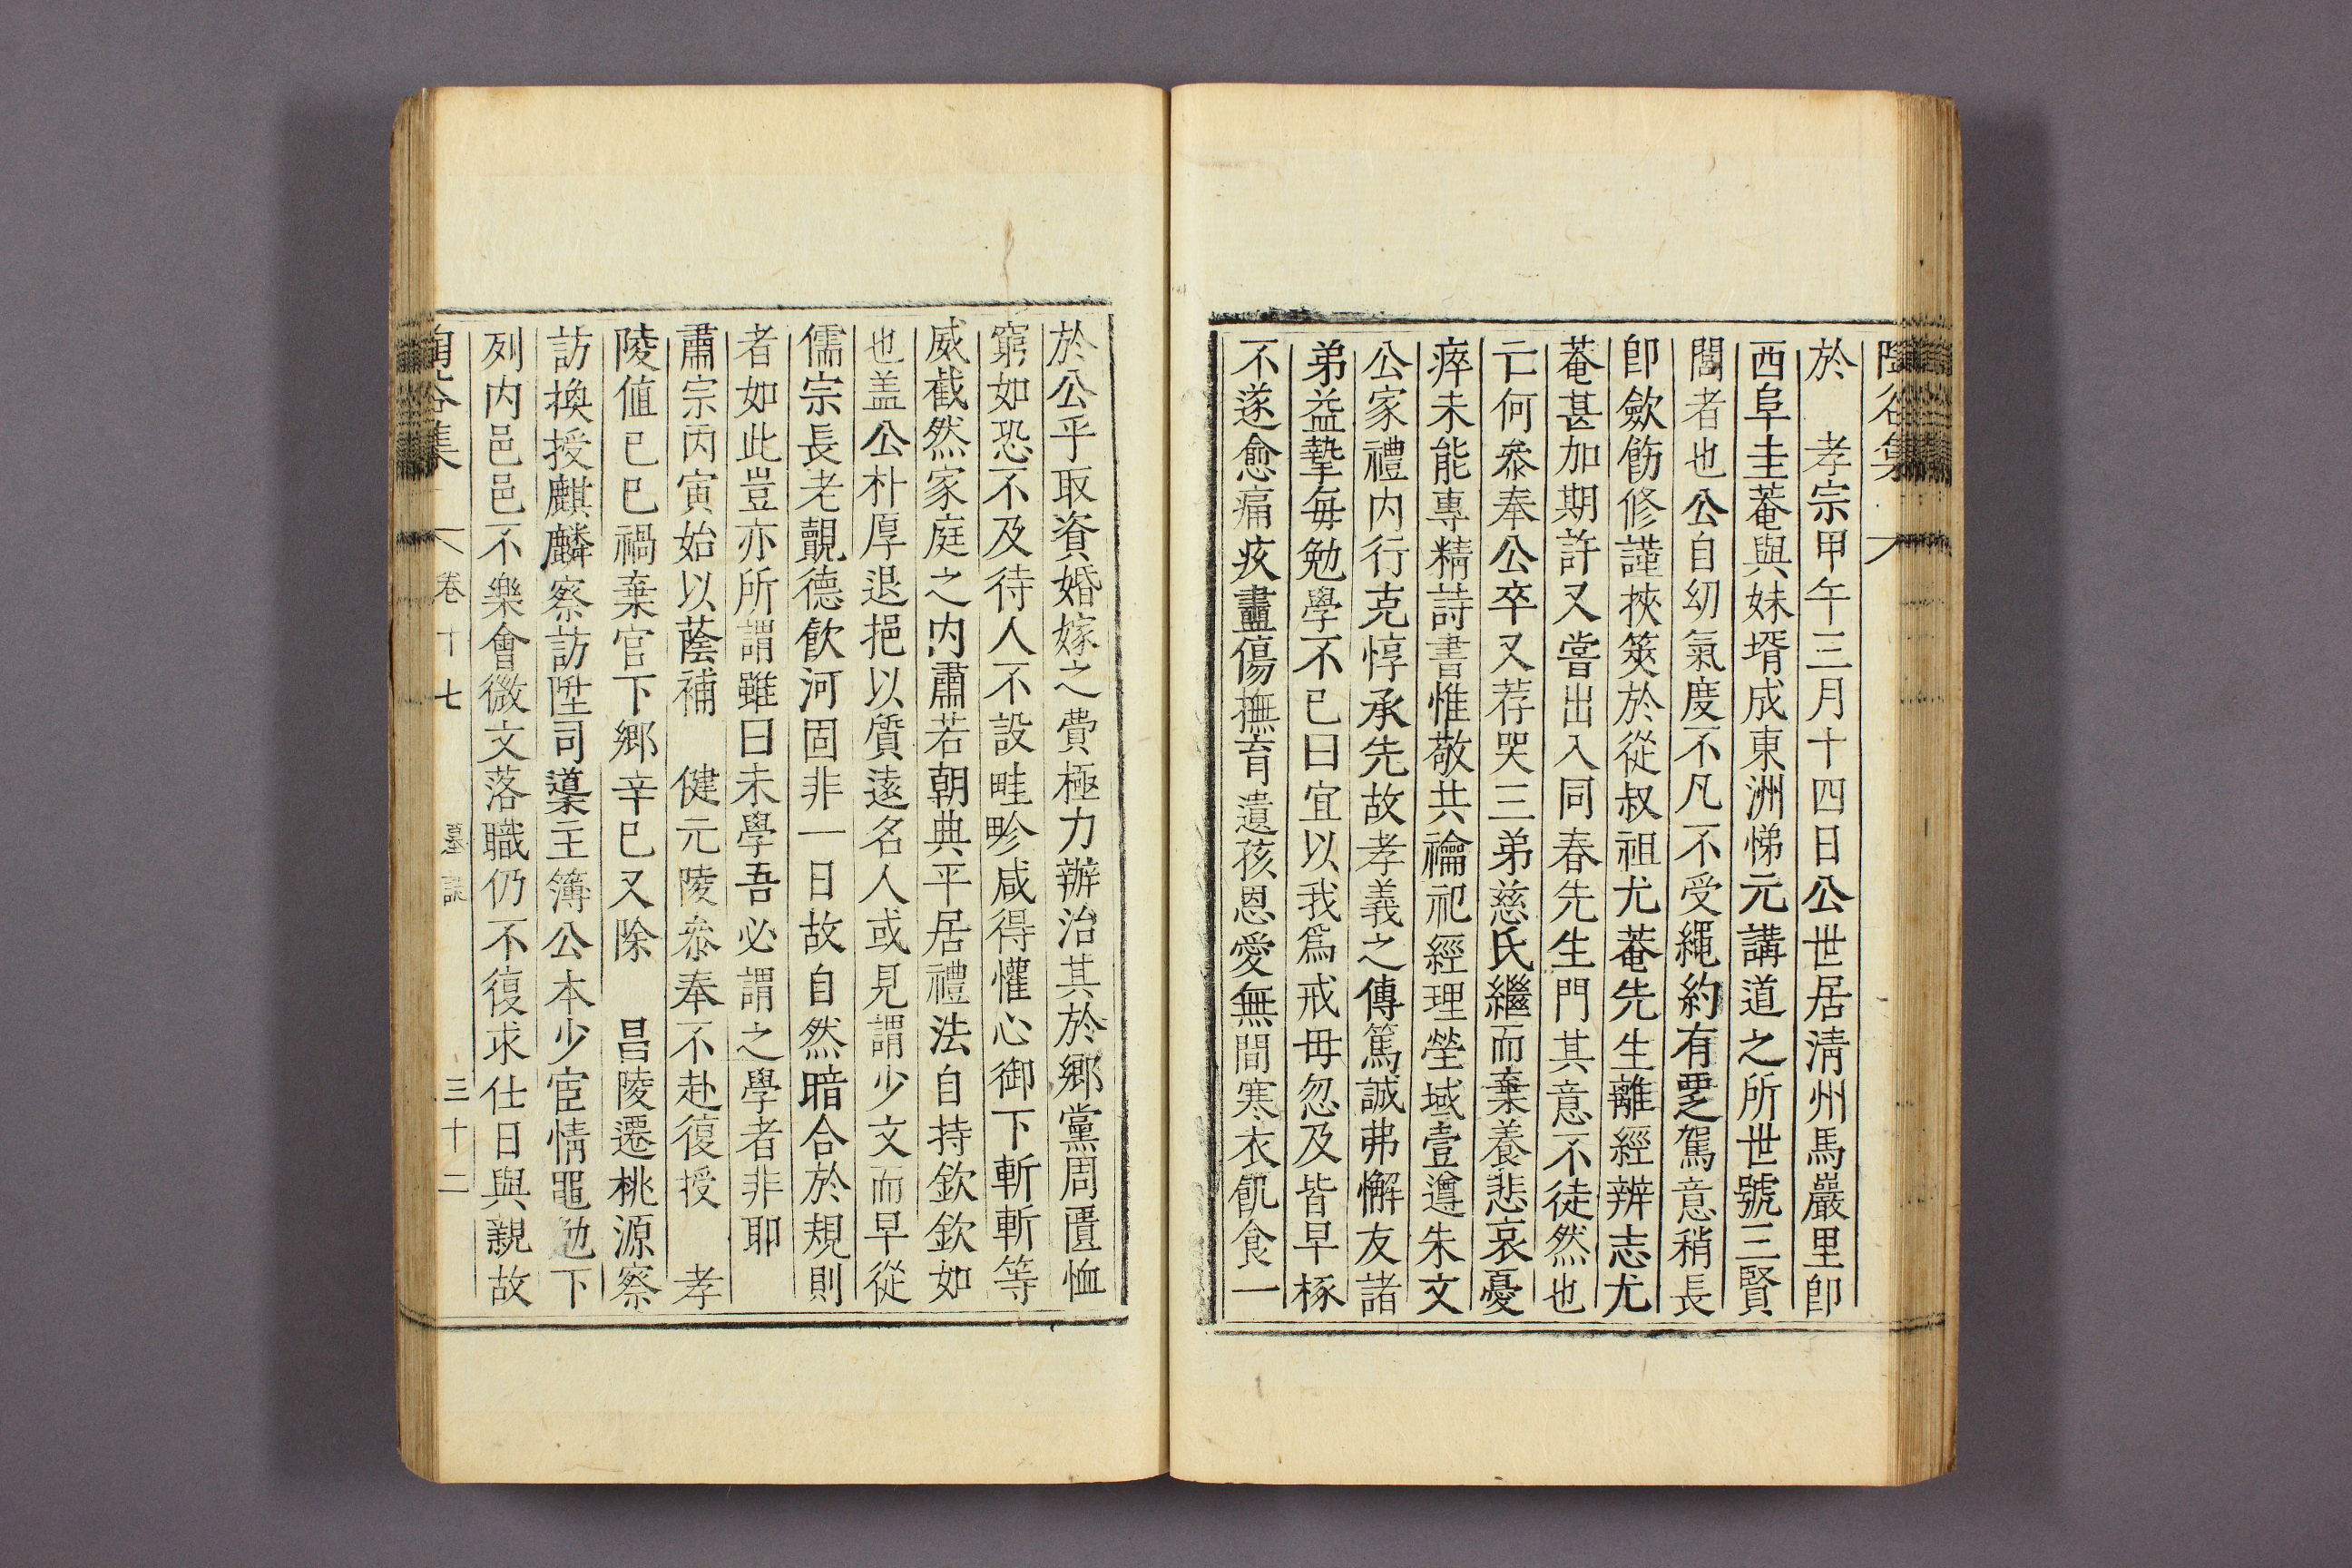 陶谷集
於　孝宗甲午三月十四日公世居淸州馬巖里卽
西阜圭菴與妹壻成東洲悌元講道之所世號三賢
閭者也公自幼氣度不凡不受繩約有覂駕意稍長
卽歛飭修謹挾筴於從叔祖尤菴先生離經辨志尤
菴甚加期許又嘗出入同春先生門其意不徒然也
亡何叅奉公卒又荐哭三弟慈氏繼而棄養悲哀憂
瘁未能專精詩書惟敬共禴祀經理塋域壹遵朱文
公家禮內行克惇承先故孝義之傳篤誠弗懈友諸
弟益摯每勉學不已曰宜以我爲戒毋忽及皆早椓
不遂愈痛疚盡傷撫育遺孩恩愛無間寒衣飢食一
於公乎取資婚嫁之費極力辦治其於鄉黨周匱恤
窮如恐不及待人不設畦畛咸得懽心御下斬斬等
威截然家庭之內肅若朝典平居禮法自持欽欽如
也盖公朴厚退挹以質遠名人或見謂少文而早從
儒宗長老覿德飮河固非一日故自然暗合於規則
者如此豈亦所謂雖曰未學吾必謂之學者非耶
肅宗丙寅始以蔭補　健元陵叅奉不赴復授　孝
陵值己巳禍棄官下鄉辛巳又除　昌陵遷桃源察
訪換授麒麟察訪陞司䆃主簿公本少宦情黽勉下
列內邑邑不樂會微文落職仍不復求仕日與親故
陶谷集　卷十七　墓誌　三十二